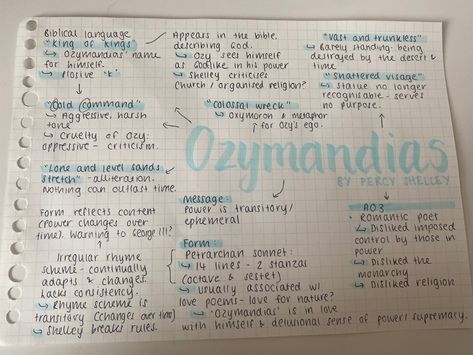 Biblical language
"king of kings"
↳ Ozymandias' name
for himself.
↳ Plosive 'k'
Appears in the bible.
describing God.
↳ Ozy sees himself
as Godlike in his power
↳ Shelley criticises
Church / organised religion?
"Vast and trunkless"
↳ Barely standing: being
destroyed by the desert &
time
"Shattered visage"
↳ Statue no longer
recognisable - serves
no purpose.
"Cold command"
↳ Aggressive, harsh
tone
↳ Cruelty of Ozy:
oppressive - criticism.
"colossal wreck"
↳ Oxymoron & metaphor
for Ozy's ego.
Ozymandias
BY PERCY SHELLEY
"Lone and level sands
stretch" - alliteration.
Nothing can outlast time.
Form reflects content
(power changes over
time). Warning to George III?
Irregular rhyme
scheme - continually
adapts & changes.
Lacks consistency.
↳ Rhyme scheme is
transitory (changes over time)
↳ Shelley breaks rules.
Message:
Power is transitory/
ephemeral
Form:
Petrarchan sonnet:
↳ 14 lines - 2 stanzas
(octave & sestet)
↳ usually associated w/
love poems - love for nature?
↳ 'Ozymandias' is in love
with himself & delusional sense of power/supremacy.
AO3
• Romantic poet
↳ Disliked imposed
control by those in
power
↳ Disliked the
monarchy
↳ Disliked religion